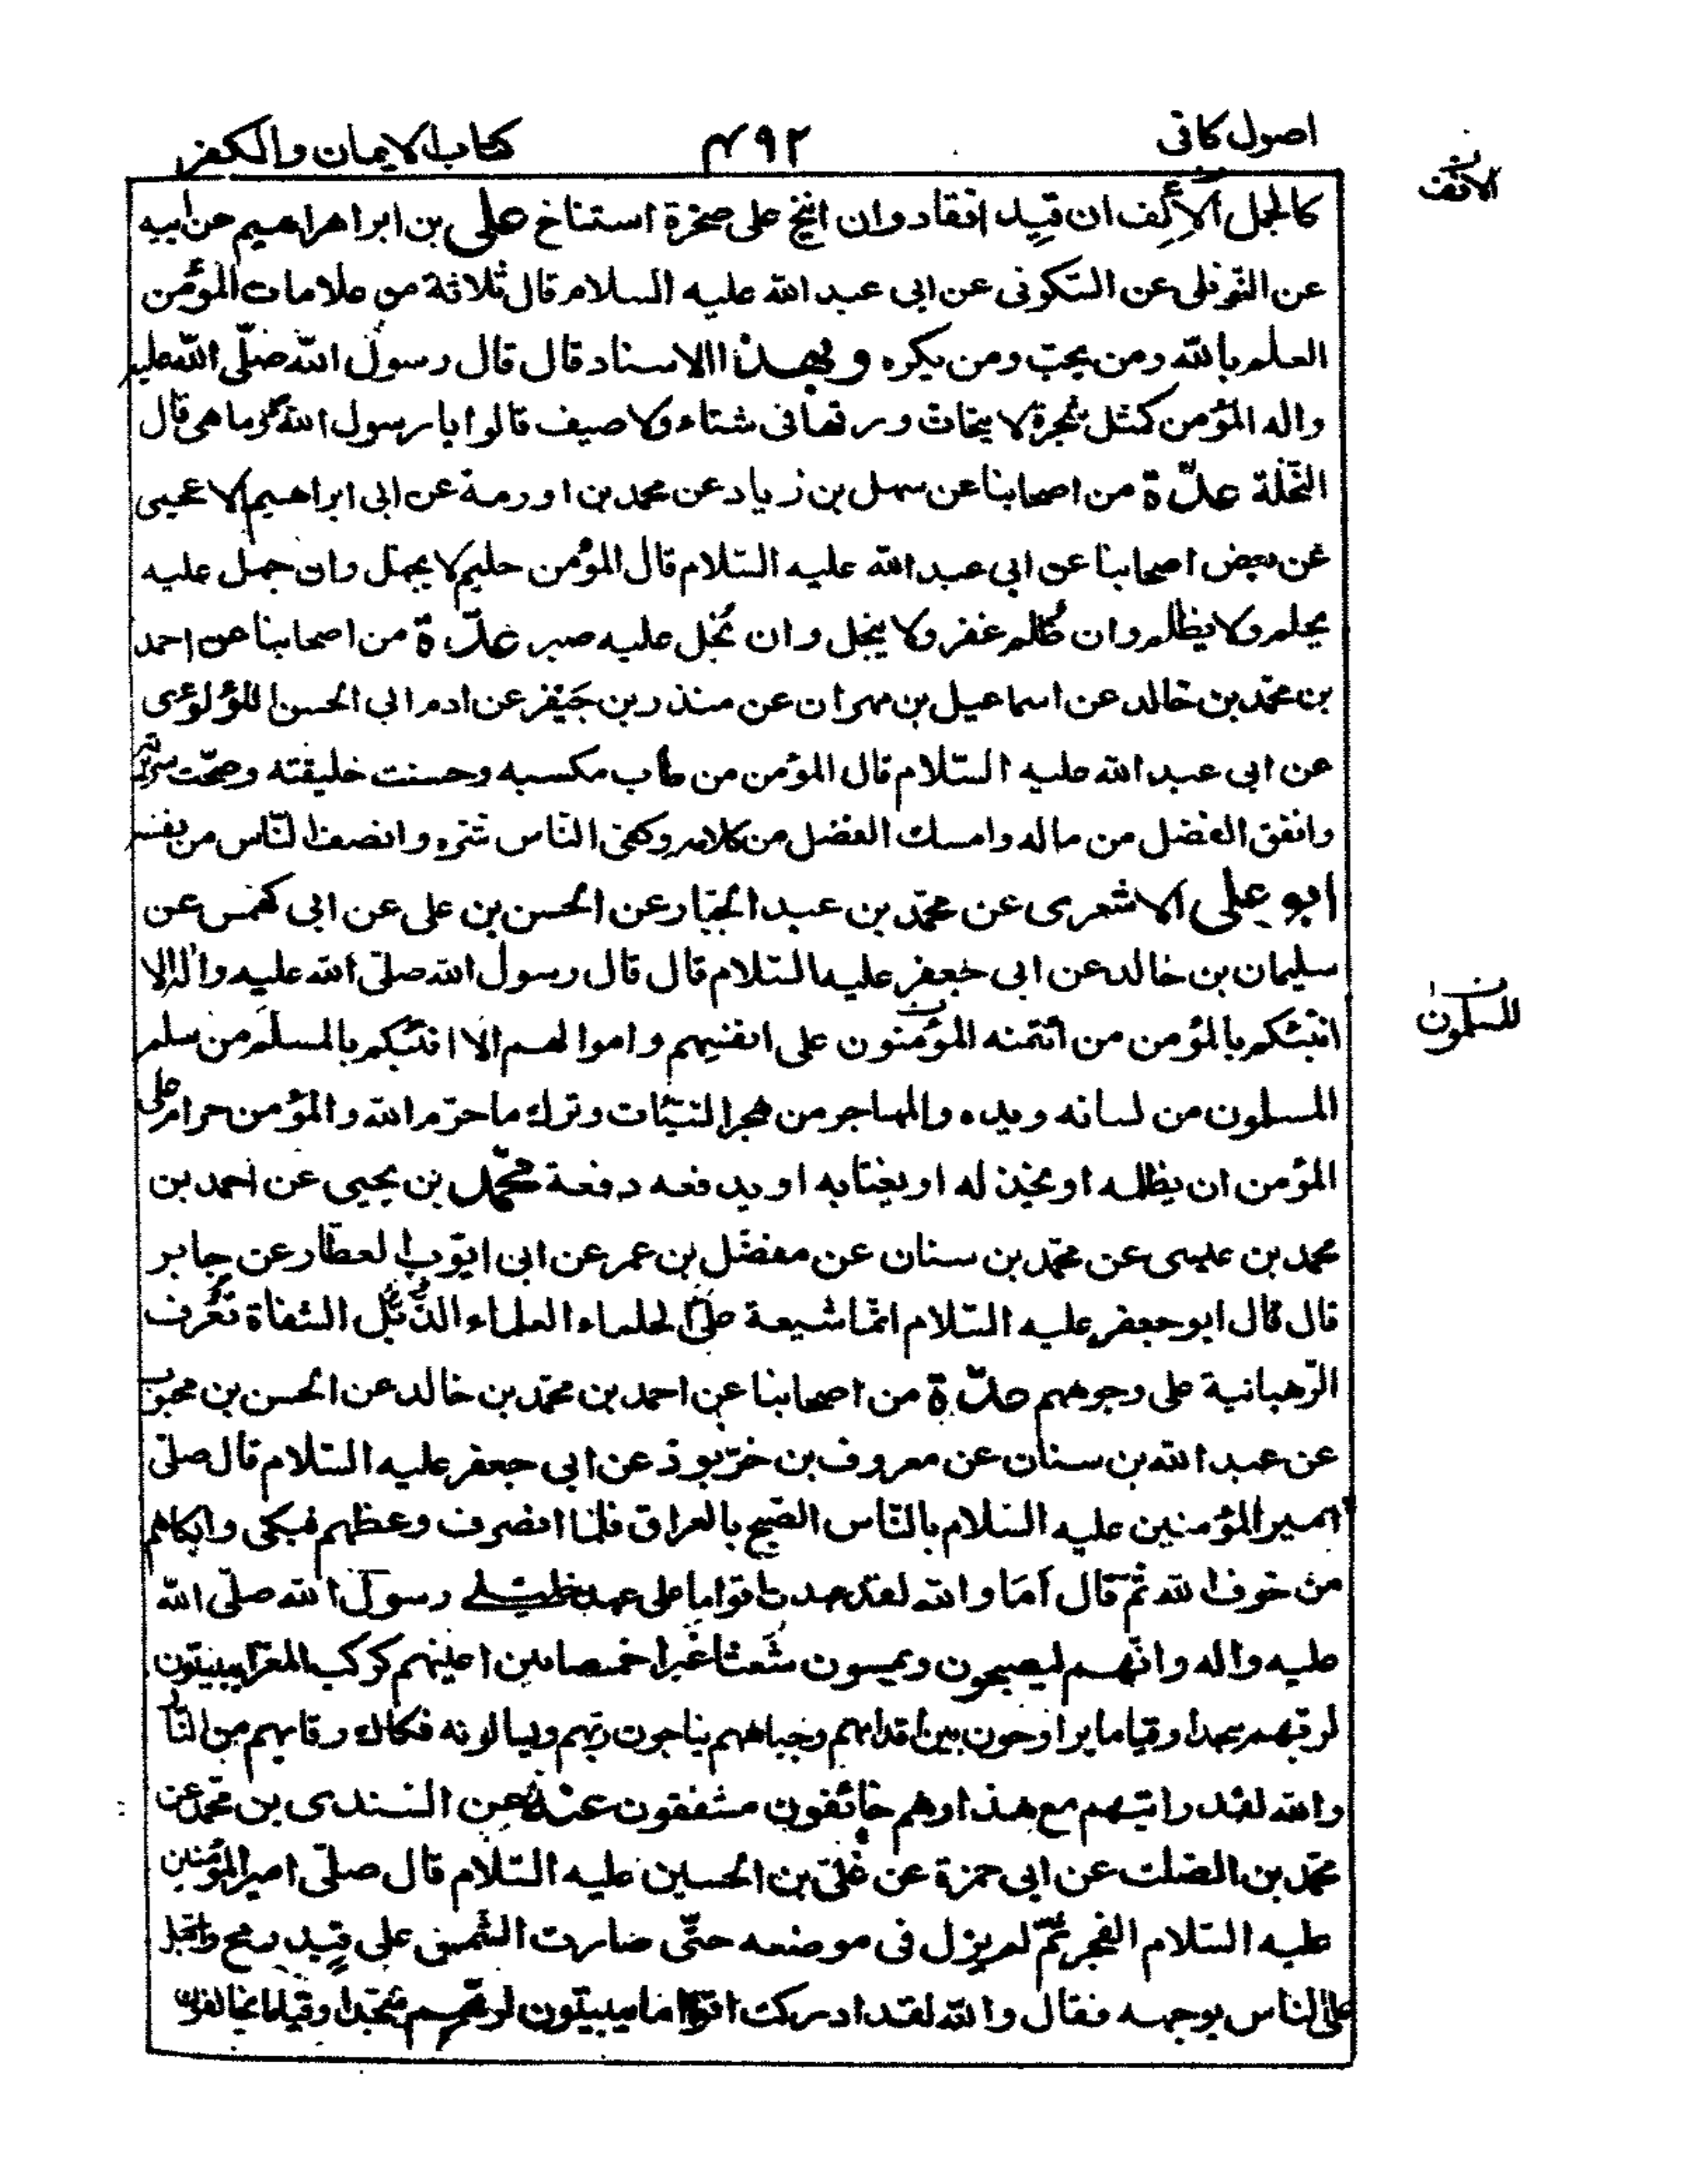 اصول كافى
۴۹۲
كتاب الايمان والكفر
الانف
كالجمل الألف ان قيد انقاد وان انيخ على صخرة استناخ على بن ابراهيم عن ابيه
عن النوفلى عن السّكونى عن ابى عبد الله عليه السلام قال ثلاثة من علامات المؤمن
العلم بالله ومن يحبّ ومن يكره وبهذا الاسناد قال قال رسول الله صلّى الله عليه
واله المؤمن كمثل شجرة لا يتحات ورقها فى شتاء ولا صيف قالوا يا رسول الله وما هى قال
النّخلة عدّة من اصحابنا عن سهل بن زياد عن محمد بن اورمة عن ابى ابراهيم الاعجمى
عن بعض اصحابنا عن ابى عبد الله عليه السّلام قال المؤمن حليم لا يجهل وان جهل عليه
يحلم ولا يظلم وان ظُلم غفر ولا يبخل وان بُخل عليه صبر عدّة من اصحابنا عن احمد
بن محمّد بن خالد عن اسماعيل بن مهران عن منذر بن جَيْفر عن ادم ابى الحسن اللؤلوءى
عن ابى عبد الله عليه السّلام قال المؤمن من طاب مكسبه وحسنت خليقته وصحّت سريرته
وانفق الفضل من ماله وامسك الفضل من كلامه وكفى النّاس شرّه وانصف النّاس من نفسه
ابو على الاشعرى عن محمّد بن عبد الجبّار عن الحسن بن على عن ابى كهمس عن
سليمان بن خالد عن ابى جعفر عليه السّلام قال قال رسول الله صلّى الله عليه واله الا
انبّئكم بالمؤمن من ائتمنه المؤمنون على انفسهم واموالهم الا انبّئكم بالمسلم من سلم
للمسلمون
المسلمون من لسانه ويده والمهاجر من هجر السّيّئات وترك ما حرّم الله والمؤمن حرام على
المؤمن ان يظلمه او يخذله او يغتابه او يدفعه دفعة محمّد بن يحيى عن احمد بن
محمد بن عيسى عن محمّد بن سنان عن مفضّل بن عمر عن ابى ايّوب العطّار عن جابر
قال قال ابو جعفر عليه السّلام انّما شيعة علىّ الحلماء العلماء الذُّبُل الشفاة تُعرف
الرّهبانية على وجوههم عدّة من اصحابنا عن احمد بن محمّد بن خالد عن الحسن بن محبوب
عن عبد الله بن سنان عن معروف بن خرّبوذ عن ابى جعفر عليه السّلام قال صلّى
امير المؤمنين عليه السّلام بالنّاس الصّبح بالعراق فلمّا انصرف وعظهم فبكى وابكاهم
من خوف الله ثمّ قال اَما والله لقد عهدت اقواما على عهد خليلى رسول الله صلّى الله
عليه واله وانّهم ليصبحون ويمسون شُعثا غُبرا خمصا بين اعينهم كركب المعزا يبيتون
لربّهم سجدا وقياما يراوحون بين اقدامهم وجباههم يناجون ربّهم ويسالونه فكاك رقابهم من النّار
والله لقد رايتهم مع هذا وهم خائفون مشفقون عنه عن السّندى بن محمّد عن
محمّد بن الصّلت عن ابى حمزة عن علىّ بن الحسين عليه السّلام قال صلّى امير المؤمنين
عليه السّلام الفجر ثمّ لم يزل فى موضعه حتّى صارت الشّمس على قيد رمح واقبل
على النّاس بوجهه فقال والله لقد ادركت اقواما يبيتون لربّهم سُجّدا وقياما يخالفون